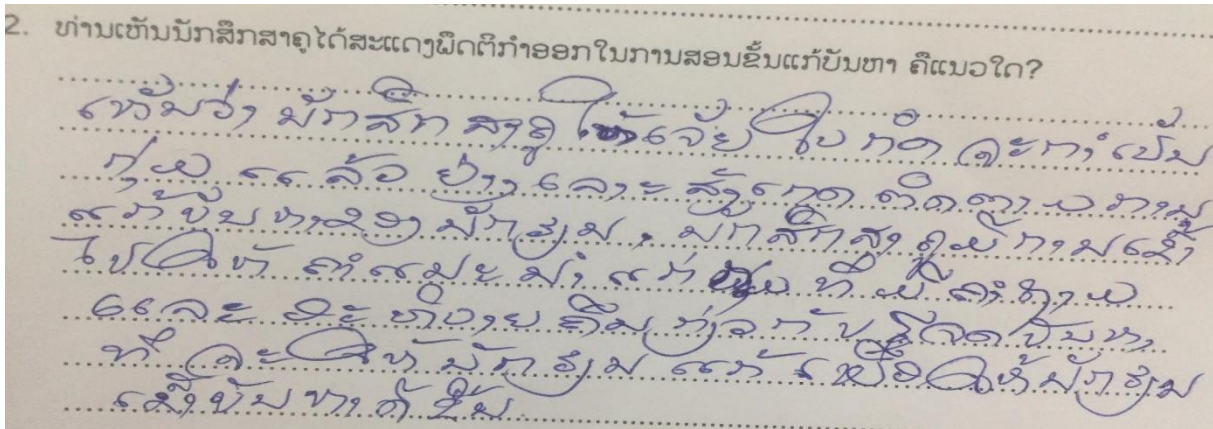 2. ທ່ານເຫັນນັກສຶກສາຄູໄດ້ສະແດງພຶດຕິກຳອອກໃນການສອນຂັ້ນແກ້ບັນຫາ ຄືແນວໃດ?
ເຫັນວ່າ ນັກສຶກ ສາຄູ ໃຫ້ເຈ້ຍ ໃບ ກິດ ຈະກຳ ເປັນ
ກຸ່ມ ແລ້ວ ຍ່າງ ເລາະ ສັງເກດ ຕິດຕາມ ການ
ແກ້ບັນຫາຂອງ ນັກຮຽນ, ນັກສຶກສາ ຄູມີການເຂົ້າ
ໄປໃຫ້ ຄຳແນະນຳ ແກ່ ກຸ່ມ ທີ່ ມີ ຄຳຖາມ
ແລະ ອະທິບາຍ ຄືນ ກ່ຽວກັບ ໂຈດບັນຫາ
ທີ່ ຈະ ໃຫ້ ນັກຮຽນ ແກ້ ເພື່ອໃຫ້ນັກຮຽນ
ເຂົ້າບັນຫາດີ ຂຶ້ນ